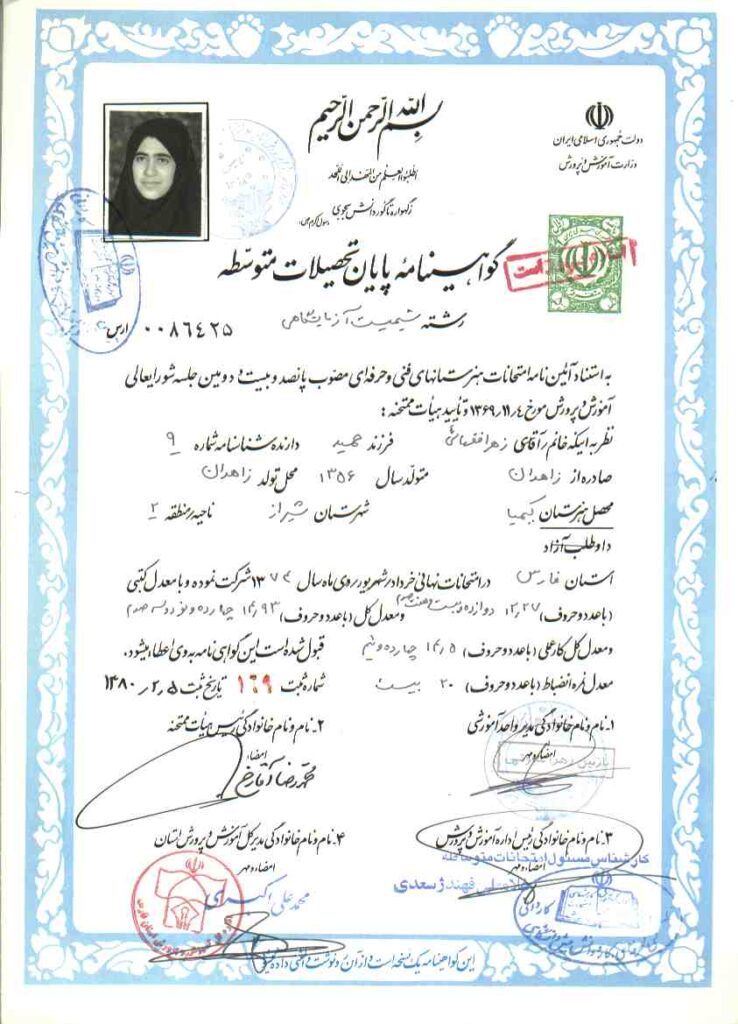 بسم الله الرحمن الرحیم
دولت جمهوری اسلامی ایران
وزارت آموزش و پرورش
اطلبوا العلم من المهد الی اللحد
ز گهواره تا گور دانش بجوی
رسول اکرم (ص)
گواهینامهٔ پایان تحصیلات متوسطه
رشته شیمیست آزمایشگاهی
۰۰۸۶۴۲۵
به استناد آئین نامه امتحانات هنرستانهای فنی و حرفه‌ای مصوب پانصد و بیست و دومین جلسه شورایعالی
آموزش و پرورش مورخ ۱۳۶۹/۱۱/۴ و تأیید هیأت ممتحنه :
نظر به اینکه خانم / آقای زهرا فرزند حمید دارنده شناسنامه شماره ۹
صادره از زاهدان متولد سال ۱۳۵۶ محل تولد زاهدان
محصل هنرستان کیمیا شهرستان شیراز ناحیه / منطقه ۲
داوطلب آزاد
استان فارس در امتحانات نهائی خرداد / شهریور / دی ماه سال ۱۳۷۴ شرکت نموده و با معدل کتبی
(با عدد و حروف) ۱۲,۲۷ دوازده و بیست و هفت صدم و معدل کل (با عدد و حروف) ۱۴,۹۳ چهارده و نود و سه صدم
و معدل کل کار عملی (با عدد و حروف) ۱۴,۵ چهارده و نیم قبول شده است این گواهی نامه به وی اعطاء میشود.
معدل نمره انضباط (با عدد و حروف) ۲۰ بیست شماره ثبت ۱۶۹ تاریخ ثبت ۱۳۸۰/۲/۵
۱- نام و نام خانوادگی مدیر واحد آموزشی
امضاء و مهر
۲- نام و نام خانوادگی رئیس هیأت ممتحنه
امضاء
محمدرضا
۳- نام و نام خانوادگی رئیس اداره آموزش و پرورش
امضاء و مهر
کارشناس مسئول امتحانات متوسطه
قهندژ سعدی
۴- نام و نام خانوادگی مدیر کل آموزش و پرورش استان
امضاء و مهر
محمد علی اکبری
این گواهینامه یک نسخه است و از آن رونوشت و المثنی داده نمیشود